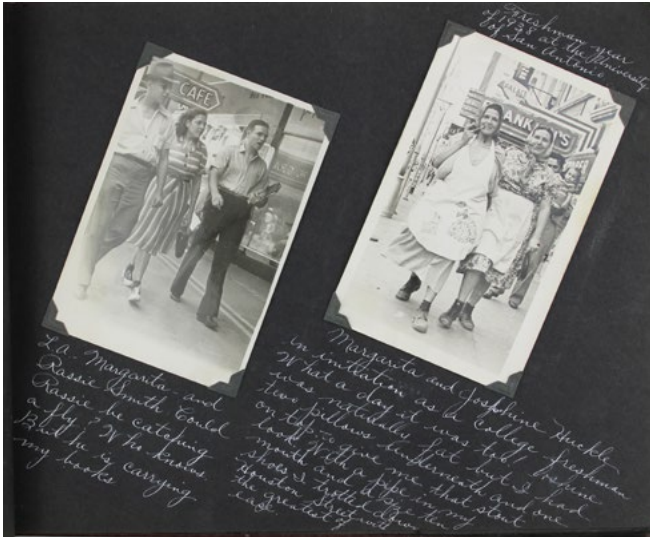 CAFE
Freshman year
of 1938 at the University
of San Antonio
La. Margarita and
Rassie Smith Could
Rassie be catching
a fly? Who knows
But he is carrying
my books
Margarita and Josephine Huckle
in initiation as College freshman
What a day it was too! Josephine
was naturally fat but I had
two pillows underneath and one
on top to give me that stout
look. With a pipe in my
mouth and
shoes I trotted down
Houston Street with
the greatest of
ease